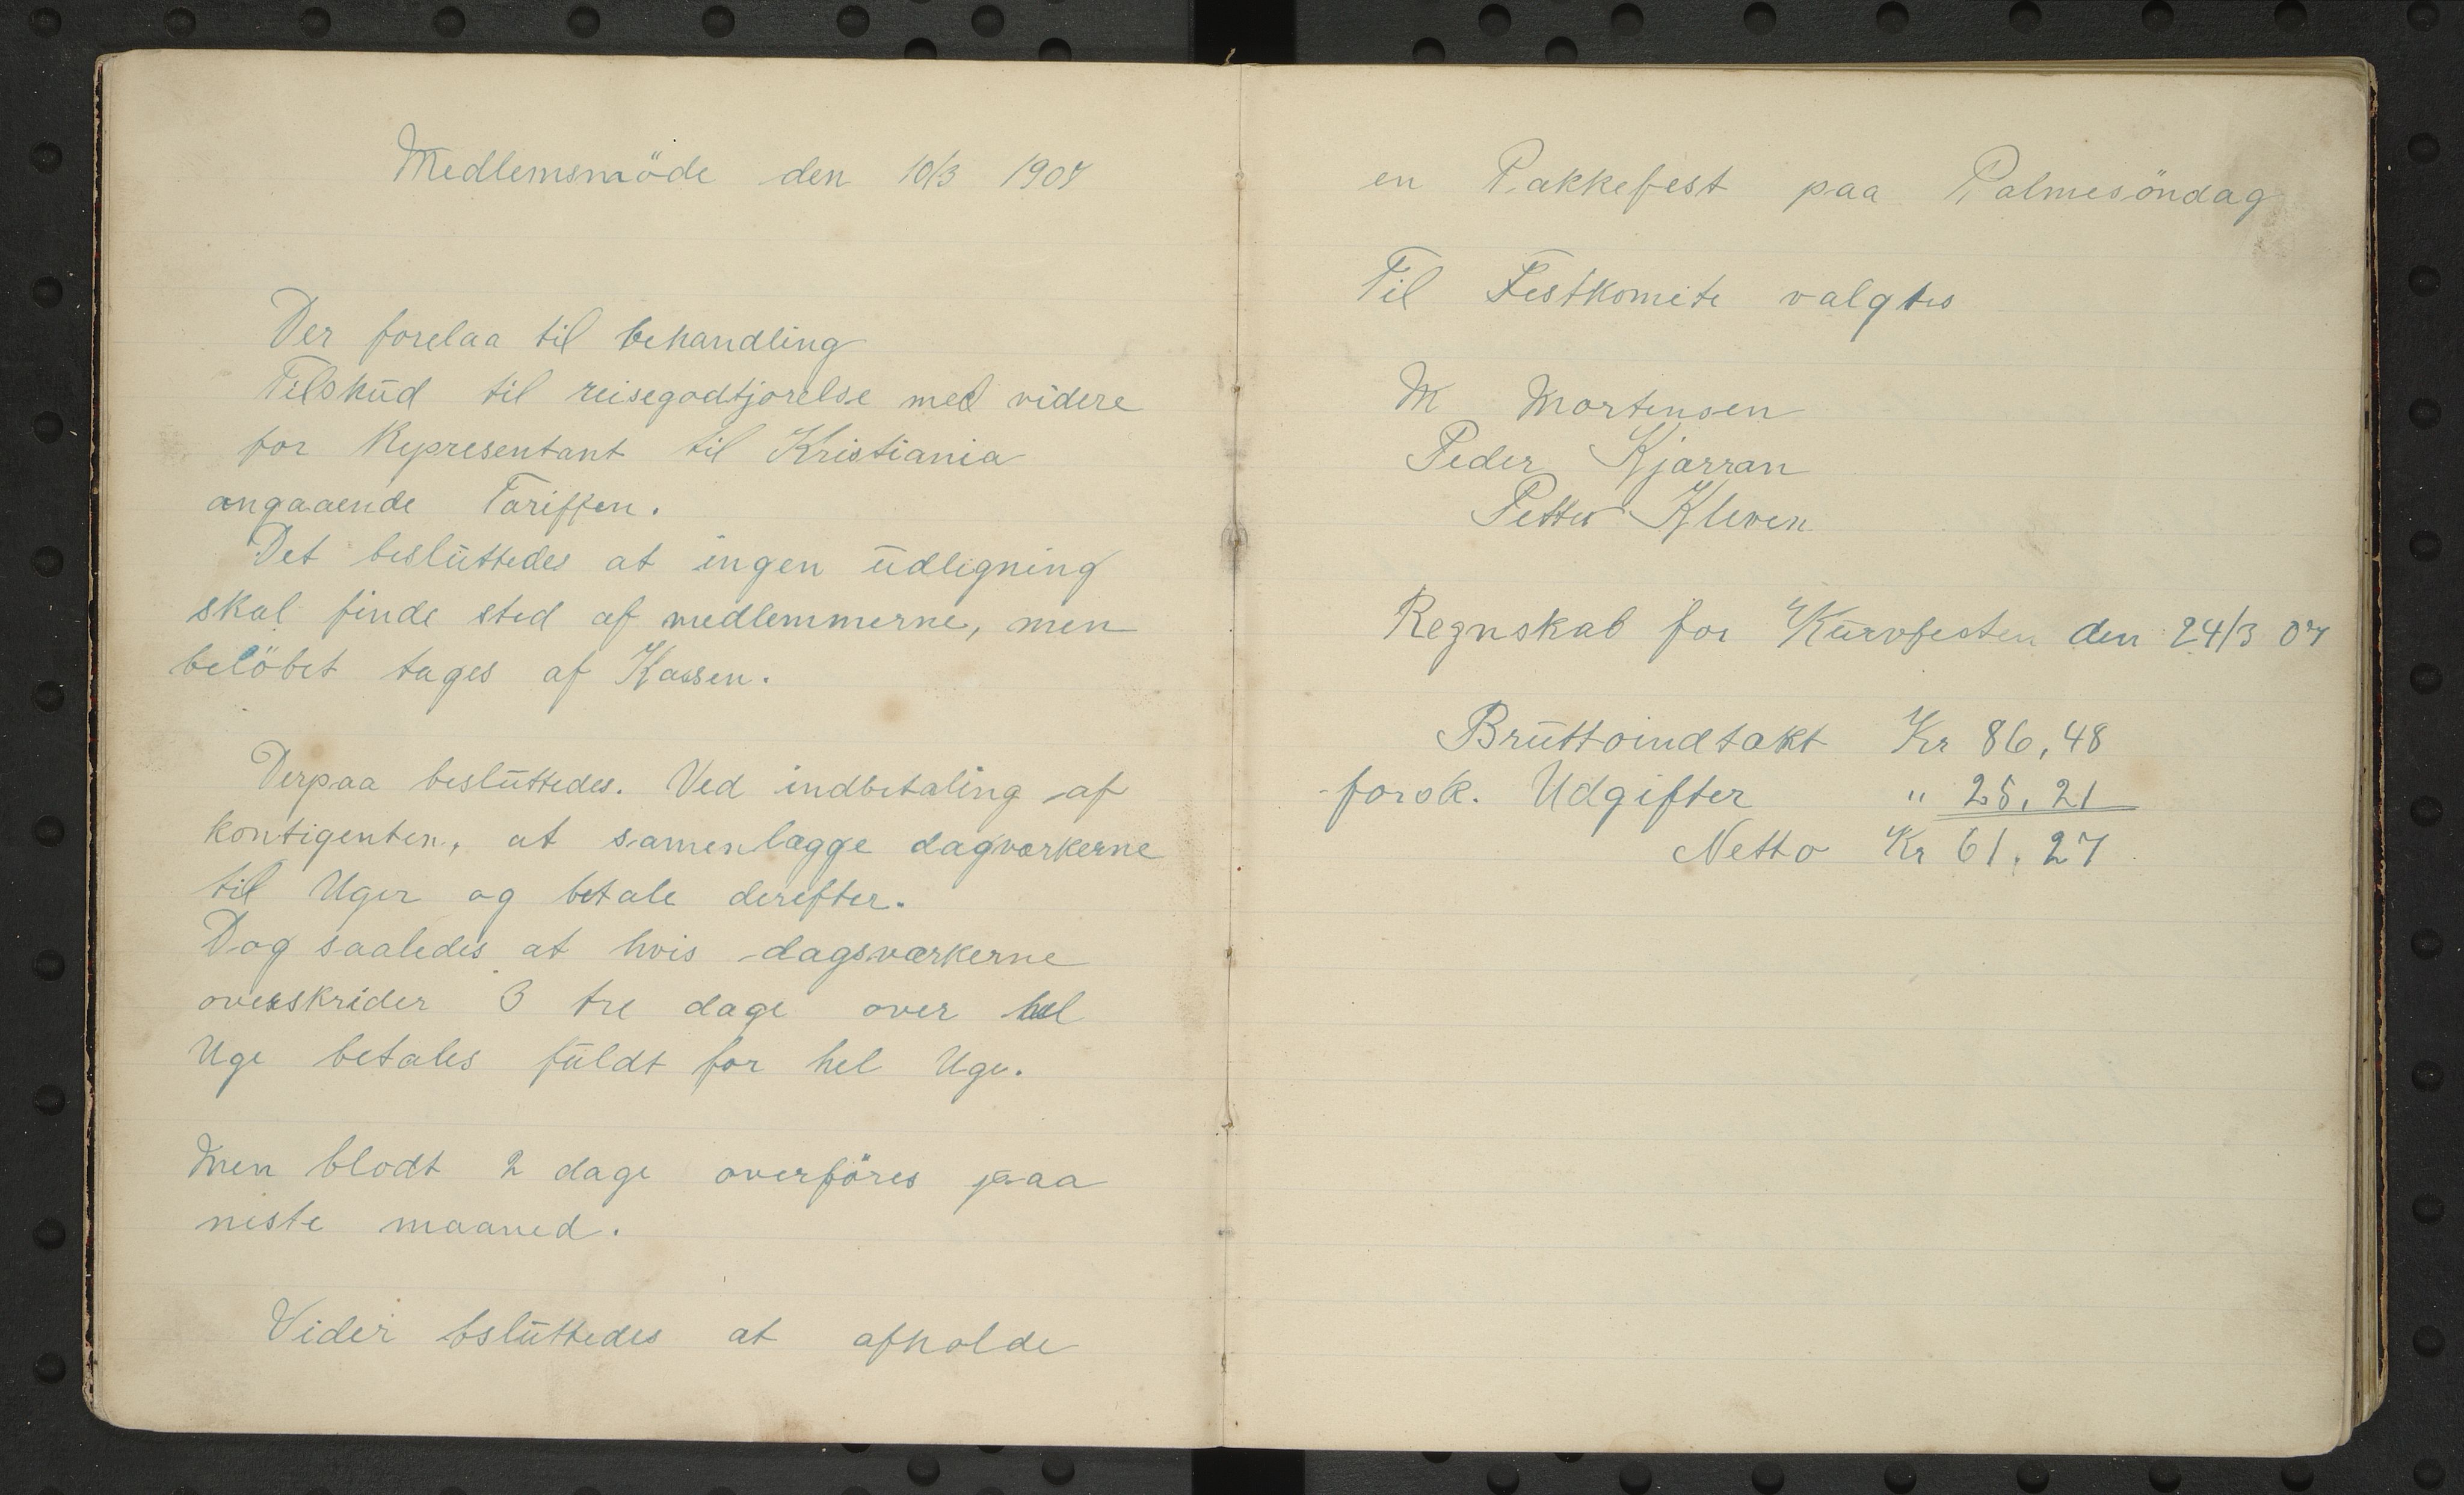 Medlemsmöde den 10/3 1907
Der forelaa til behandling
Tilskud til reisegodtjorelse med videre
for Representant til Kristiania
angaaende Tariffen.
Det besluttedes at ingen udligning
skal finde sted af medlemmerne, men
belöbet tages af Kassen.
Derpaa besluttedes. Ved indbetaling af
kontigenten, at samenlægge dagværkerne
til Uger og betale derefter.
Dog saaledes at hvis dagsværkerne
overskrider 3 tre dage over hel
Uge betales fuldt for hel Uge.
Men blodt 2 dage overföres paa
neste maaned.
Vider bsluttedes at afholde
en Pakkefest paa Palmesöndag
Til Festkomite valgtes
M Mortensen
Peder Kjærran
Petter Kleven
Regnskab for Kurvfesten den 24/3 07
Bruttoindtakt Kr 86,48
forsk. Udgifter " 25,21
Netto Kr 61,27